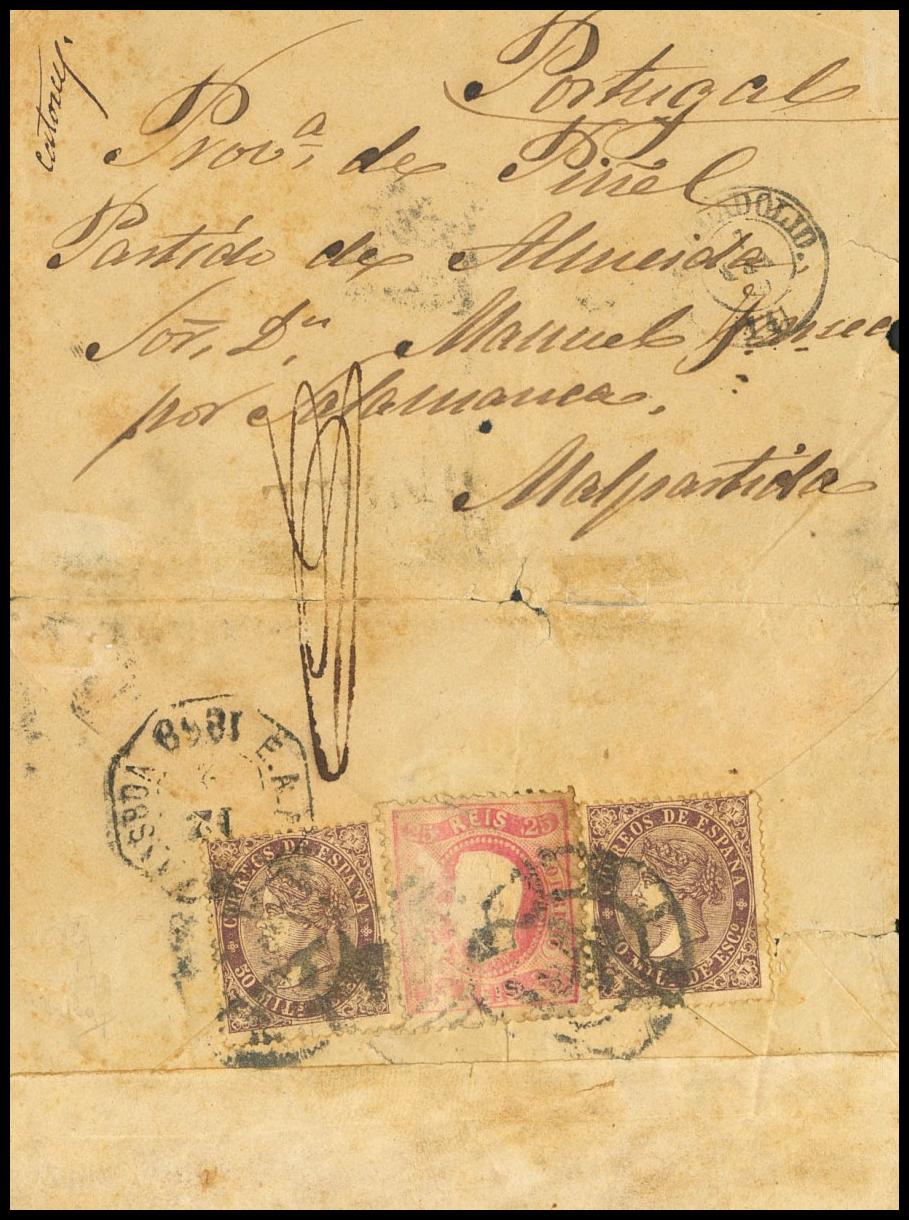 Portugal
Prov.ª de Piñel
Partido de Almeida.
Sor. Dn. Manuel
por Salamanca.
Malpartida
ADOLID.
1868
LISBOA
12
CORREOS DE ESPANA
50 MIL.
25 REIS 25
CORREOS DE ESPANA
50 MIL.S DE ESC.O